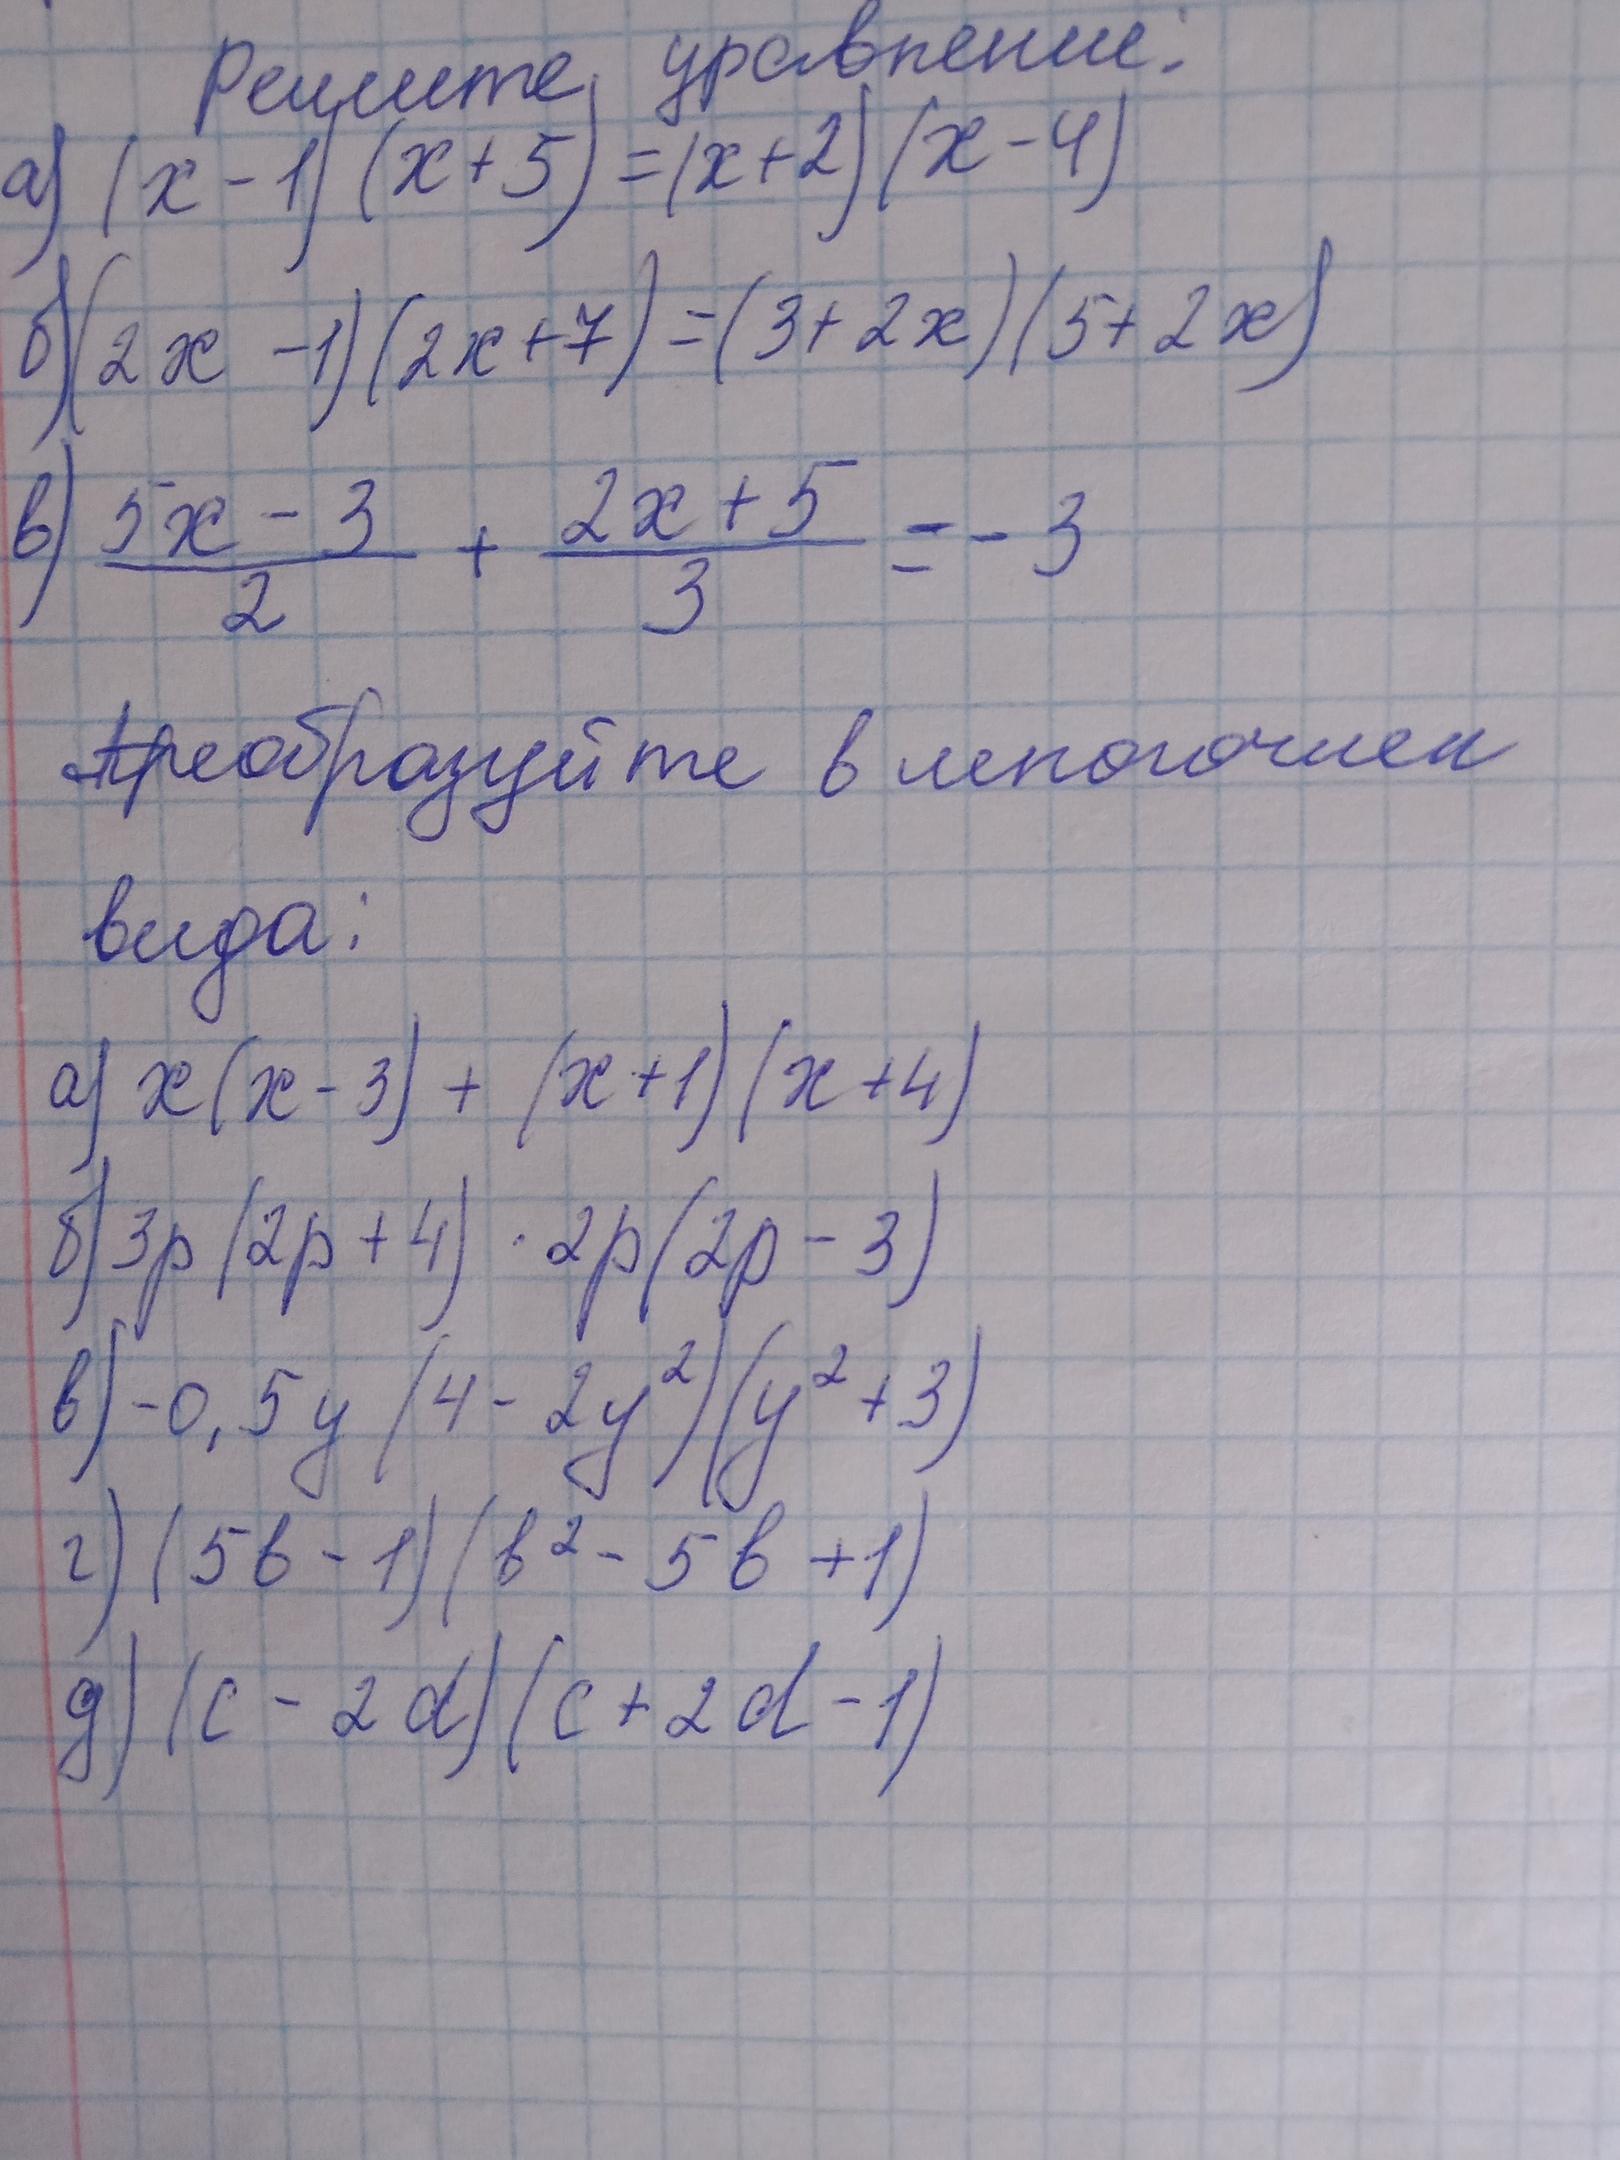 Решите уравнение:
а) (x - 1) (x + 5) = (x + 2) (x - 4)
б) (2x - 1) (2x + 7) = (3 + 2x) (5 + 2x)
в) \frac{5x - 3}{2} + \frac{2x + 5}{3} = - 3
Преобразуйте в многочлен
вида:
а) x (x - 3) + (x + 1) (x + 4)
б) 3p (2p + 4) · 2p (2p - 3)
в) -0,5y (4 - 2y²) (y² + 3)
г) (5b - 1) (b² - 5b + 1)
д) (c - 2d) (c + 2d - 1)